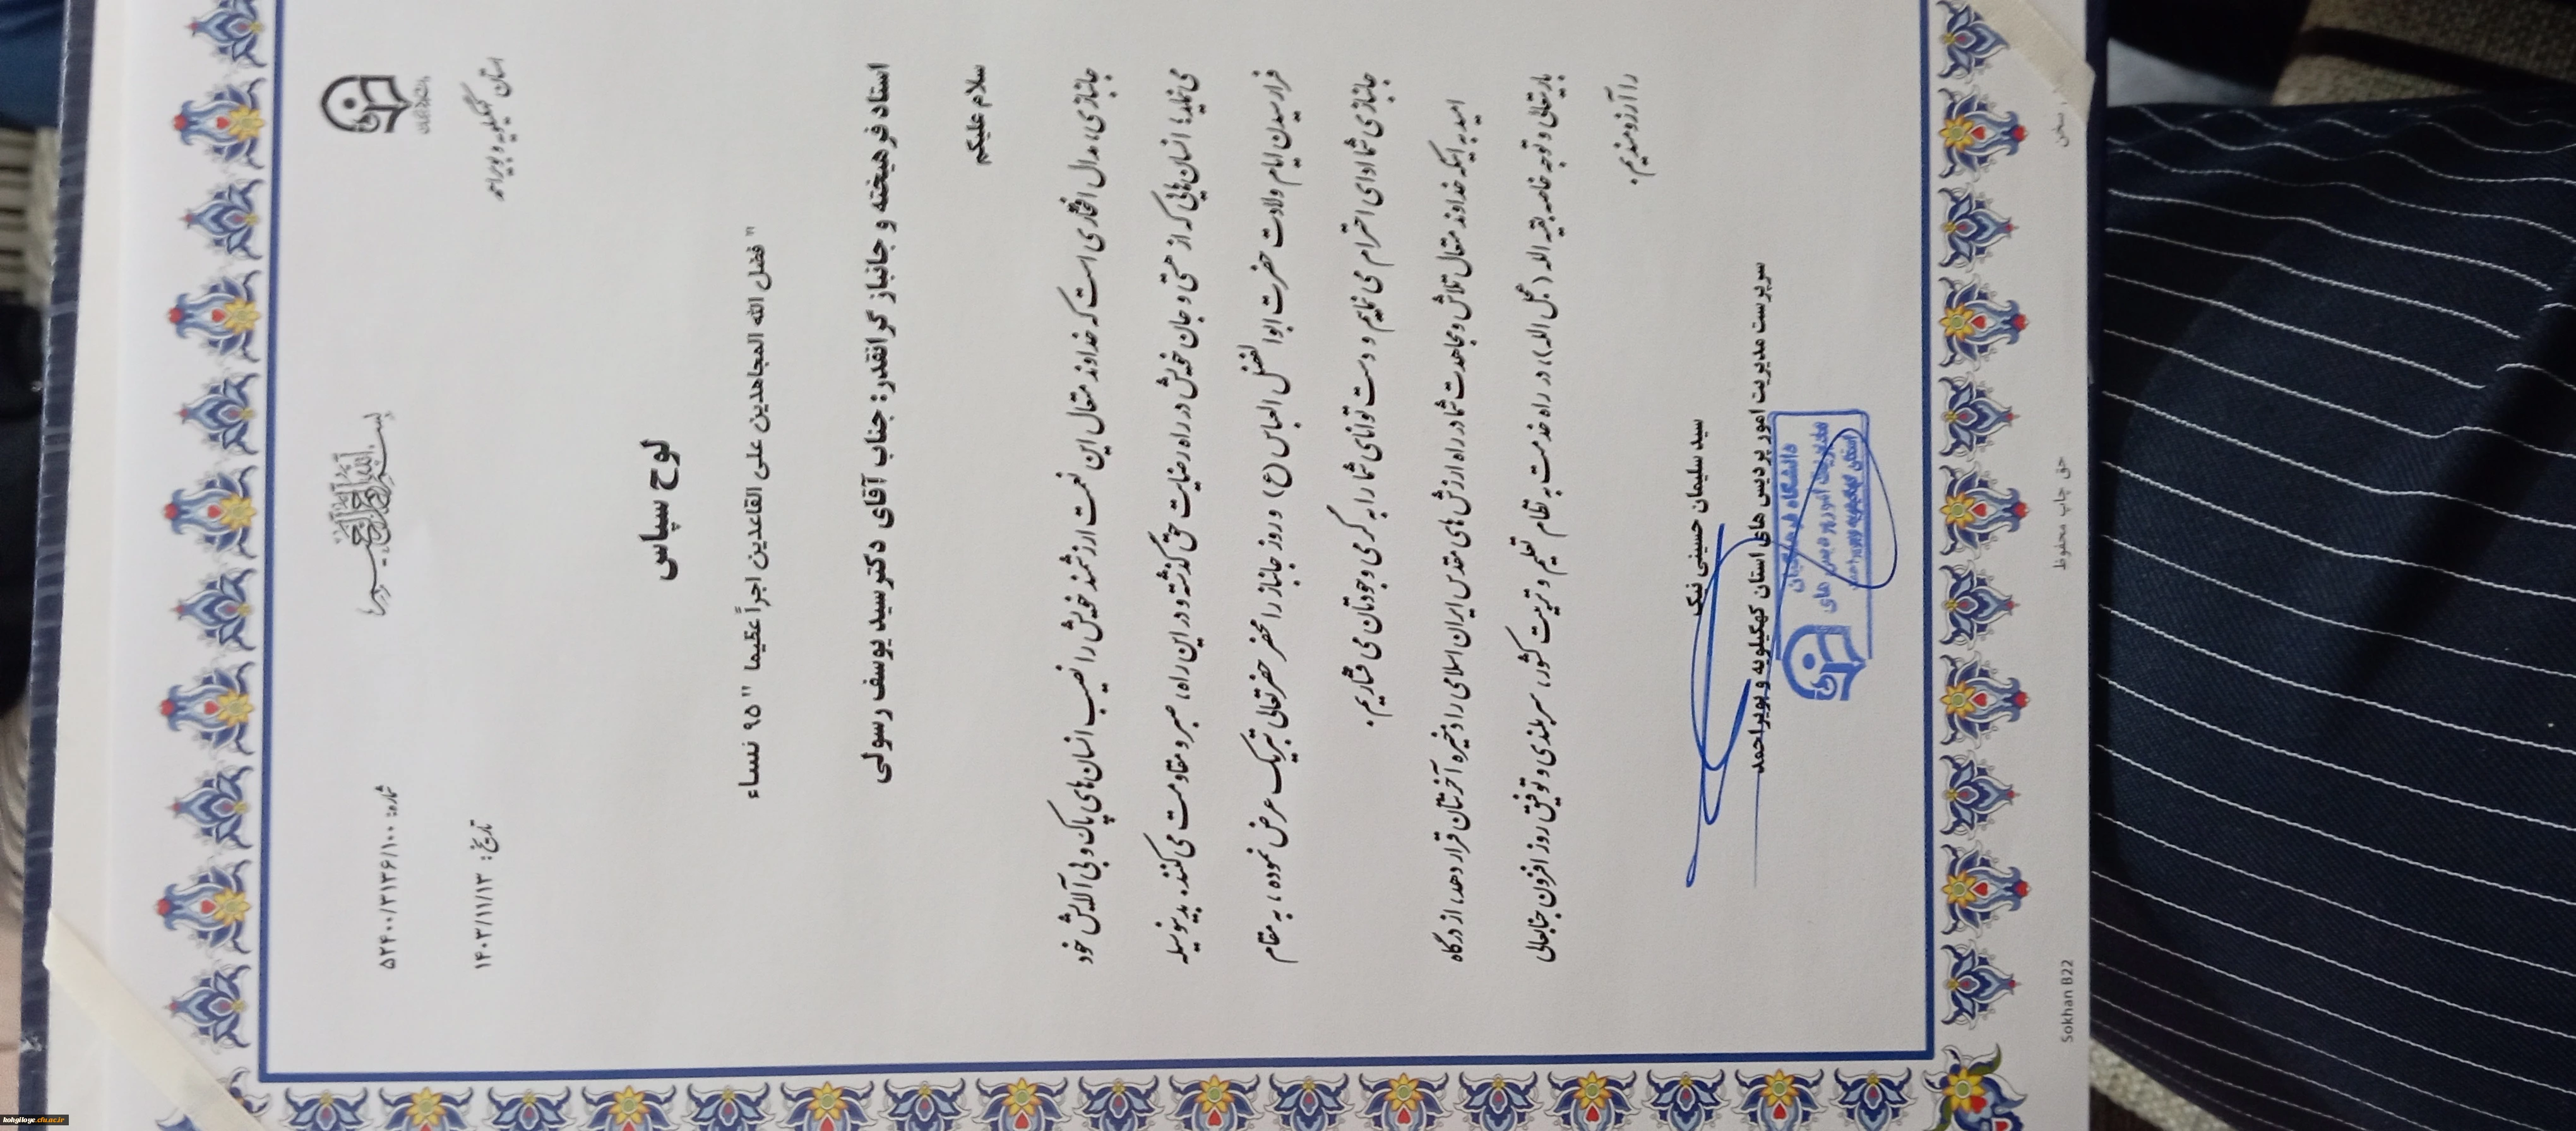 بسم الله الرحمن الرحیم
دانشگاه فرهنگیان
استان کهگیلویه و بویراحمد
شماره: ۵۲۴۰۰/۳۱۳۶/۱۰۰
تاریخ: ۱۴۰۳/۱۱/۱۳
لوح سپاس
" فضل الله المجاهدین علی القاعدین اجراً عظیما " ۹۵ نساء
استاد فرهیخته و جانباز گرانقدر: جناب آقای دکتر سید یوسف رسولی
سلام علیکم
جانبازی، مدال افتخاری است که خداوند متعال این نعمت ارزشمند خویش را نصیب انسان های پاک و بی آلایش خود
می نماید؛ انسان هایی که از هستی و جان خویش در راه رضایت حق گذشته و در این راه، صبر و مقاومت می کنند. بدینوسیله
فرارسیدن ایام ولادت حضرت ابوا لفضل العباس (ع) و روز جانباز را محضر حضرتعالی تبریک عرض نموده، به مقام
جانبازی شما ادای احترام می نمایم و دست توانای شما را به گرمی وجودتان می فشاریم.
امید به اینکه خداوند متعال تلاش و مجاهدت شما در راه ارزش های مقدس ایران اسلامی را ذخیره آخرتتان قرار دهد، از درگاه
باریتعالی و توجه خاصه بقیه الله (عجل الله)، در راه خدمت به نظام تعلیم و تربیت کشور، سربلندی و توفیق روز افزون جنابعالی
را آرزومندیم.
سید سلیمان حسینی نیک
سرپرست مدیریت امور پردیس های استان کهگیلویه و بویراحمد
دانشگاه فرهنگیان
مدیریت امور پردیس های
استان کهگیلویه و بویراحمد
سخن
حق چاپ محفوظ
Sokhan B22
kohgiloye.cfu.ac.ir